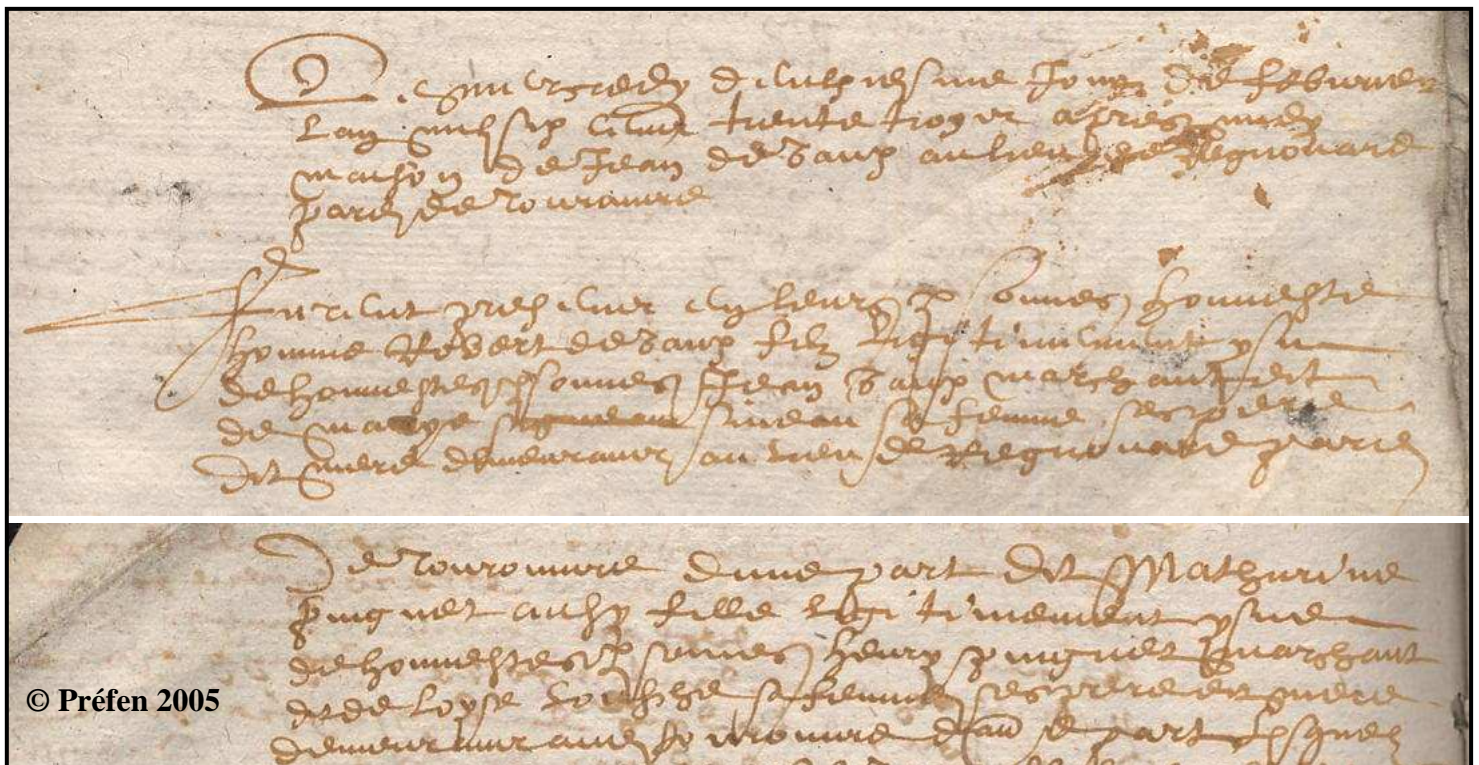 Du mercredy deuxiesme jour de febvrier
l'an mil six cent trente troys apres midy
maison de Jean de Vaux au lieu de Regnouard
par de Tourouvre
Furent presents en leurs personnes honneste
homme Robert de Vaux filz legitimement ysu
de honnestes personnes Jean Vaux marchant et
de Marye sineau sa femme ses pere
et mere demeurant au lieu de Regnouard par
De Tourouvre d'une part et Mathurine
Pinguet aussy fille legitimement ysue
de honnestes personnes Henry Pinguet marchant
et de Loyse sa femme ses pere et mere
demeurant audit Tourouvre d'autre part lesquelz
© Préfen 2005